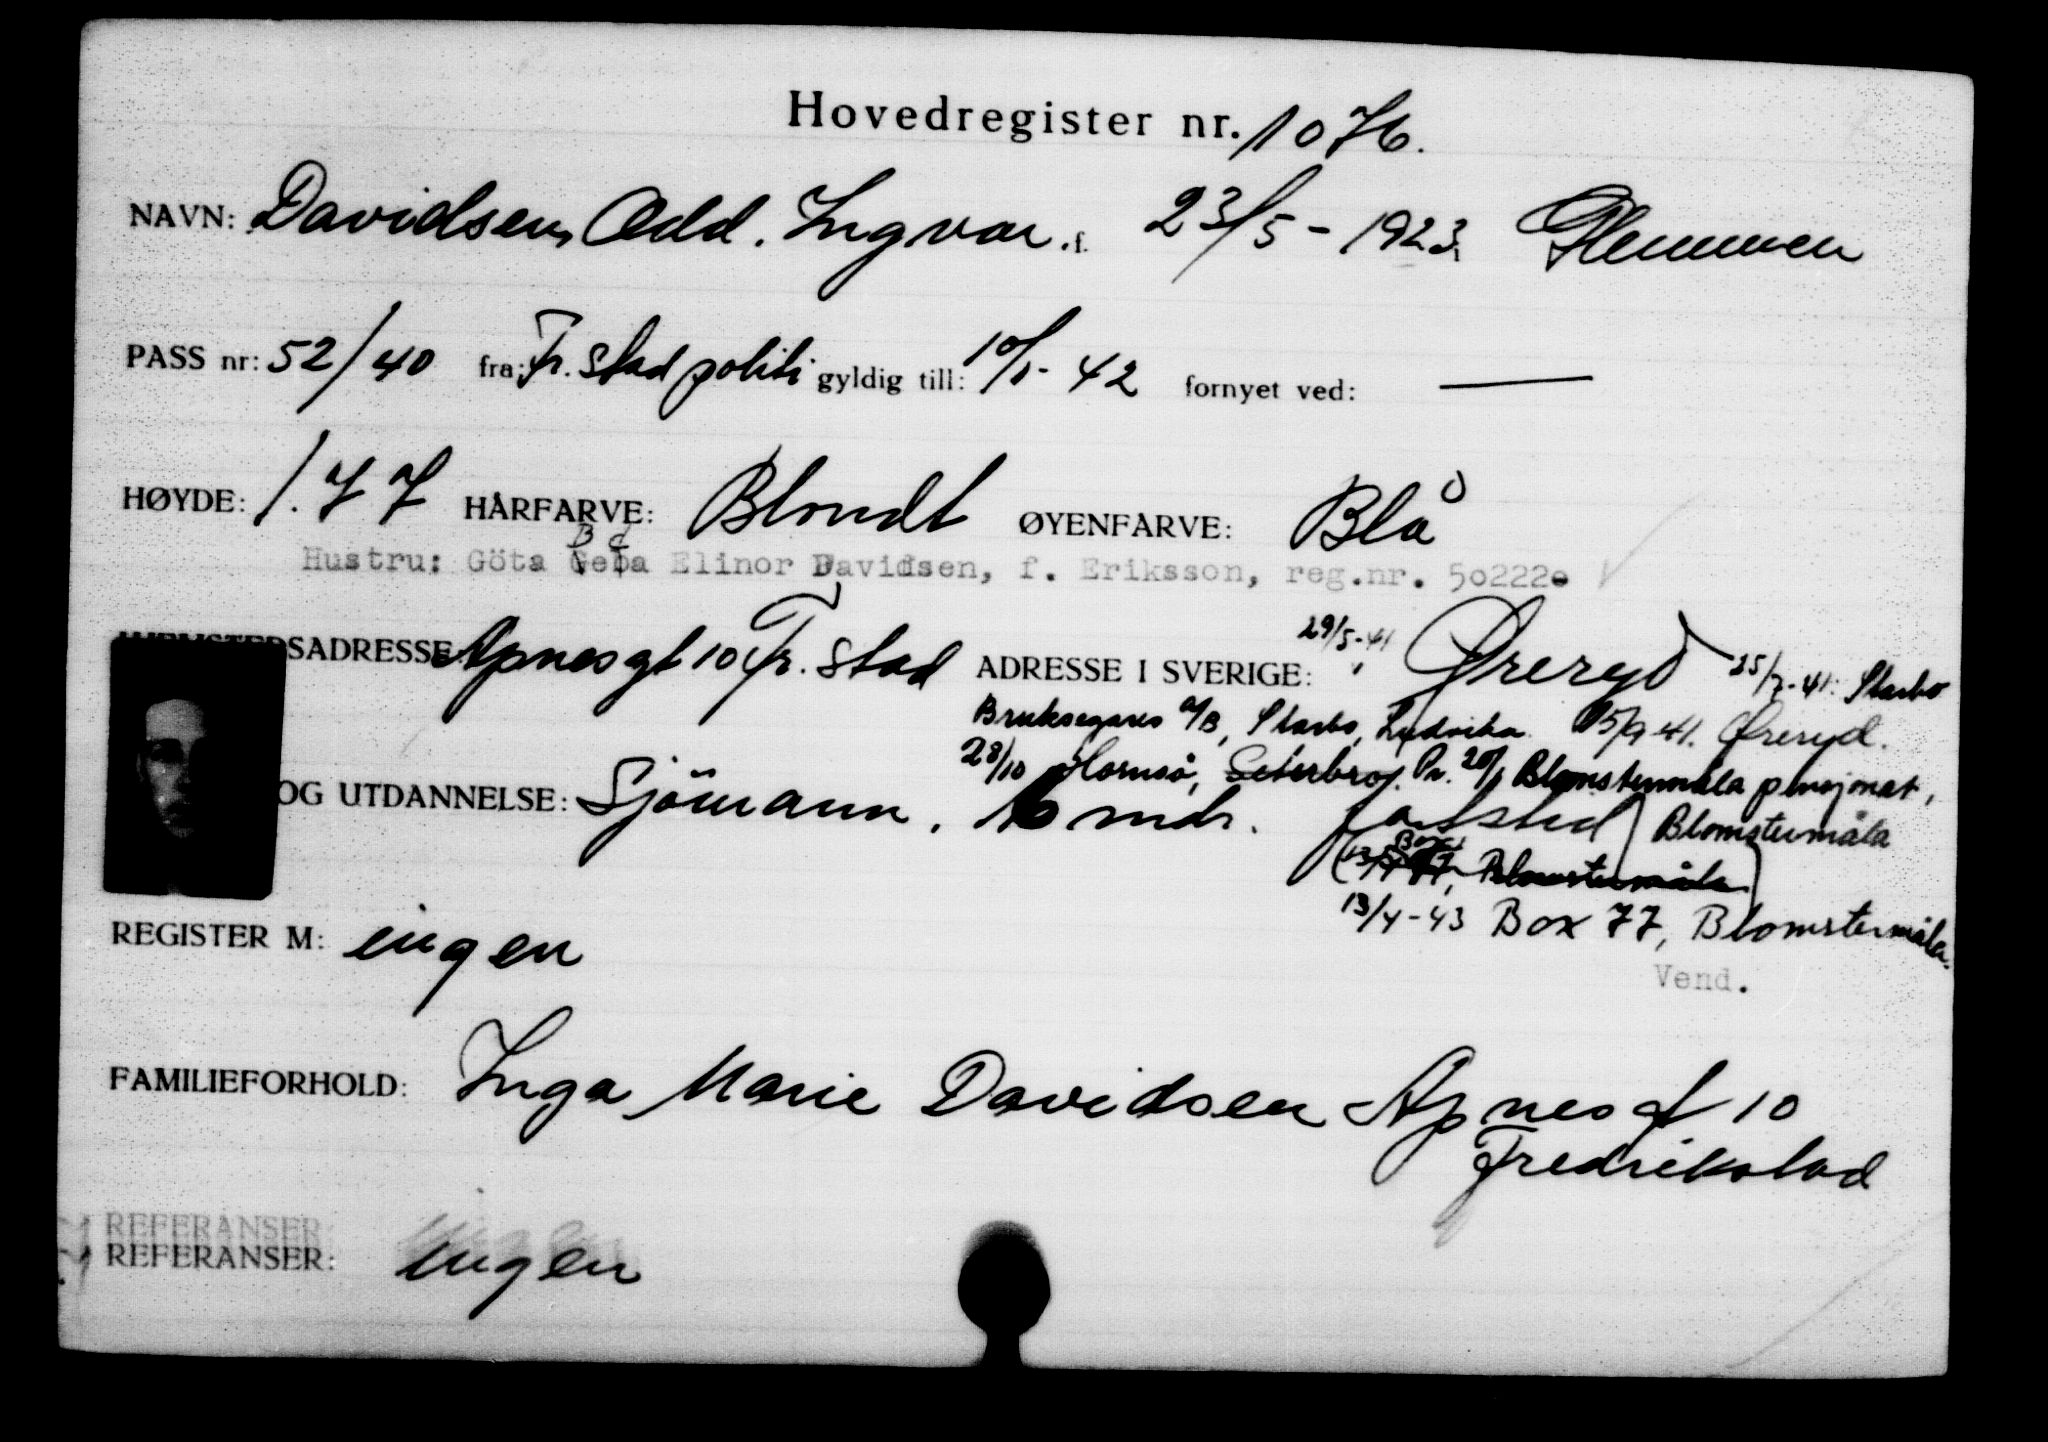 Hovedregister nr. 1076.
NAVN: Davidsen, Odd. Ingvar. f. 23/5-1923. Glemmen
PASS nr: 52/40 fra: Fr.stad politi gyldig till: 10/5-42 fornyet ved: —
HØYDE: 1.77 HÅRFARVE: Blondt ØYENFARVE: Blå
Hustru: Göta Elinor Davidsen, f. Eriksson, reg.nr. 50222
SADRESSE: Apnesgt 10 Fr.stad ADRESSE I SVERIGE: 29/5-41 Øreryd 25/7-41: Starbo
Bruksegares A/B, Starbo, Ludvika. 15/9 41. Øreryd.
28/10 Hornsö, Blomstermåla pensjonat,
OG UTDANNELSE: Sjömann. mdr. Blomstermåla
Box 77, Blomstermåla
13/4-43 Box 77, Blomstermåla.
REGISTER M: ingen
Vend.
FAMILIEFORHOLD: Inga Marie Davidsen Apnesgt 10
Fredrikstad
REFERANSER
REFERANSER: ingen